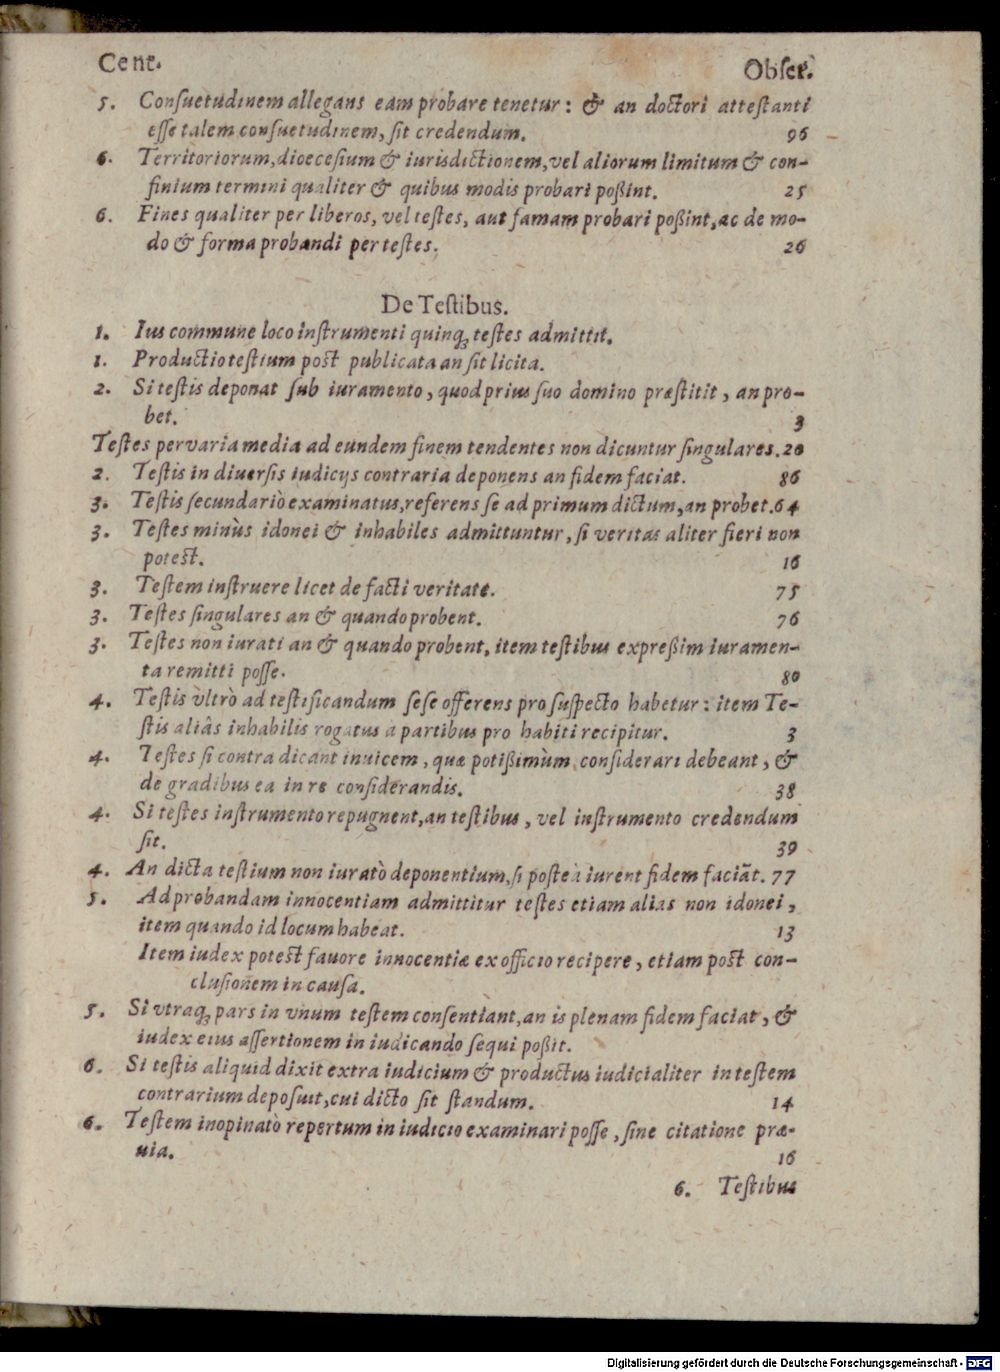 Cent. Obser.
5. Consuetudinem allegans eam probare tenetur: & an doctori attestanti
esse talem consuetudinem, sit credendum. 96
6. Territoriorum, dioecesium & iurisdictionem, vel aliorum limitum & con-
finium termini qualiter & quibus modis probari poßint. 25
6. Fines qualiter per liberos, vel testes, aut famam probari poßint, ac de mo-
do & forma probandi per testes. 26
De Testibus.
1. Ius commune loco instrumenti quinq; testes admittit.
1. Productio testium post publicata an sit licita.
2. Si testis deponat sub iuramento, quod prius suo domino præstitit, an pro-
bet. 3
Testes per varia media ad eundem finem tendentes non dicuntur singulares. 20
2. Testis in diuersis iudicijs contraria deponens an fidem faciat. 86
3. Testis secundariò examinatus, referens se ad primum dictum, an probet. 64
3. Testes minùs idonei & inhabiles admittuntur, si veritas aliter fieri non
potest. 16
3. Testem instruere licet de facti veritate. 75
3. Testes singulares an & quando probent. 76
3. Testes non iurati an & quando probent, item testibus expreßim iuramen-
ta remitti posse. 80
4. Testis vltrò ad testificandum sese offerens pro suspecto habetur: item Te-
stis aliâs inhabilis rogatus a partibus pro habiti recipitur. 3
4. Testes si contra dicant inuicem, quæ potißimùm considerari debeant, &
de gradibus ea in re considerandis. 38
4. Si testes instrumento repugnent, an testibus, vel instrumento credendum
sit. 39
4. An dicta testium non iuratò deponentium, si posteà iurent fidem faciãt. 77
5. Ad probandam innocentiam admittitur testes etiam alias non idonei,
item quando id locum habeat. 13
Item iudex potest fauore innocentiæ ex officio recipere, etiam post con-
clusionem in causa.
5. Si vtraq; pars in vnum testem consentiant, an is plenam fidem faciat, &
iudex eius assertionem in iudicando sequi poßit.
6. Si testis aliquid dixit extra iudicium & productus iudicialiter in testem
contrarium deposuit, cui dicto sit standum. 14
6. Testem inopinatò repertum in iudicio examinari posse, sine citatione præ-
uia. 16
6. Testibus
Digitalisierung gefördert durch die Deutsche Forschungsgemeinschaft - DFG